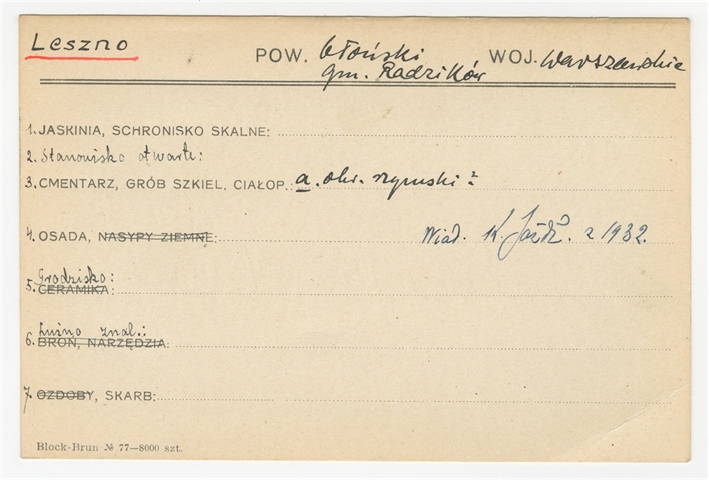 Leszno POW. Błoński WOJ. Warszawskie
gm. Radzików
1. JASKINIA, SCHRONISKO SKALNE:
2. Stanowisko otwarte:
3. CMENTARZ, GRÓB SZKIEL. CIAŁOP.: a. okr. rzymski?
4. OSADA, NASYPY ZIEMNE: Wiad. K. z 1932.
Grodzisko:
5. CERAMIKA:
Luźno znal.:
6. BROŃ, NARZĘDZIA:
7. OZDOBY, SKARB:
Block-Brun № 77—8000 szt.